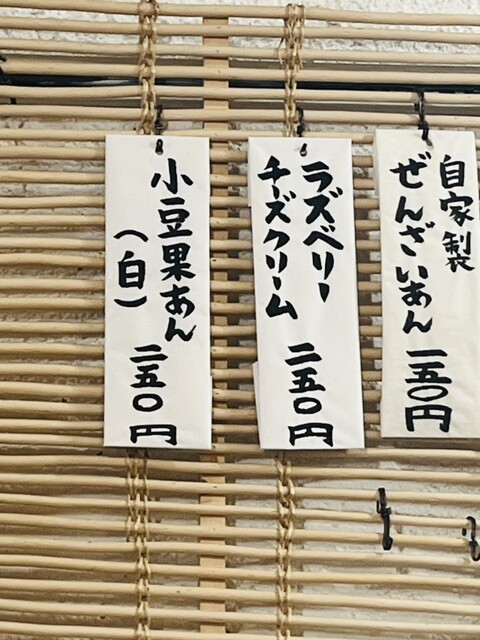 自家製
ぜんざいあん
一五〇円
ラズベリー
チーズクリーム
二五〇円
小豆果あん
（白）
二五〇円